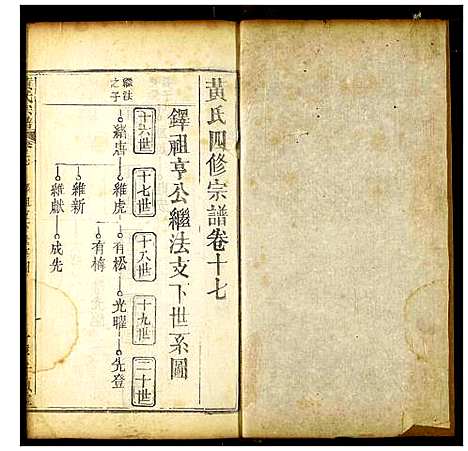 黃氏四修宗譜卷十七
鐸祖亨公繼法支下世系圖
十六世
十七世
十八世
十九世
二十世
繼法之子
緒唐
維虎
有松
光曜
先登
有梅
維新
維獻
成先